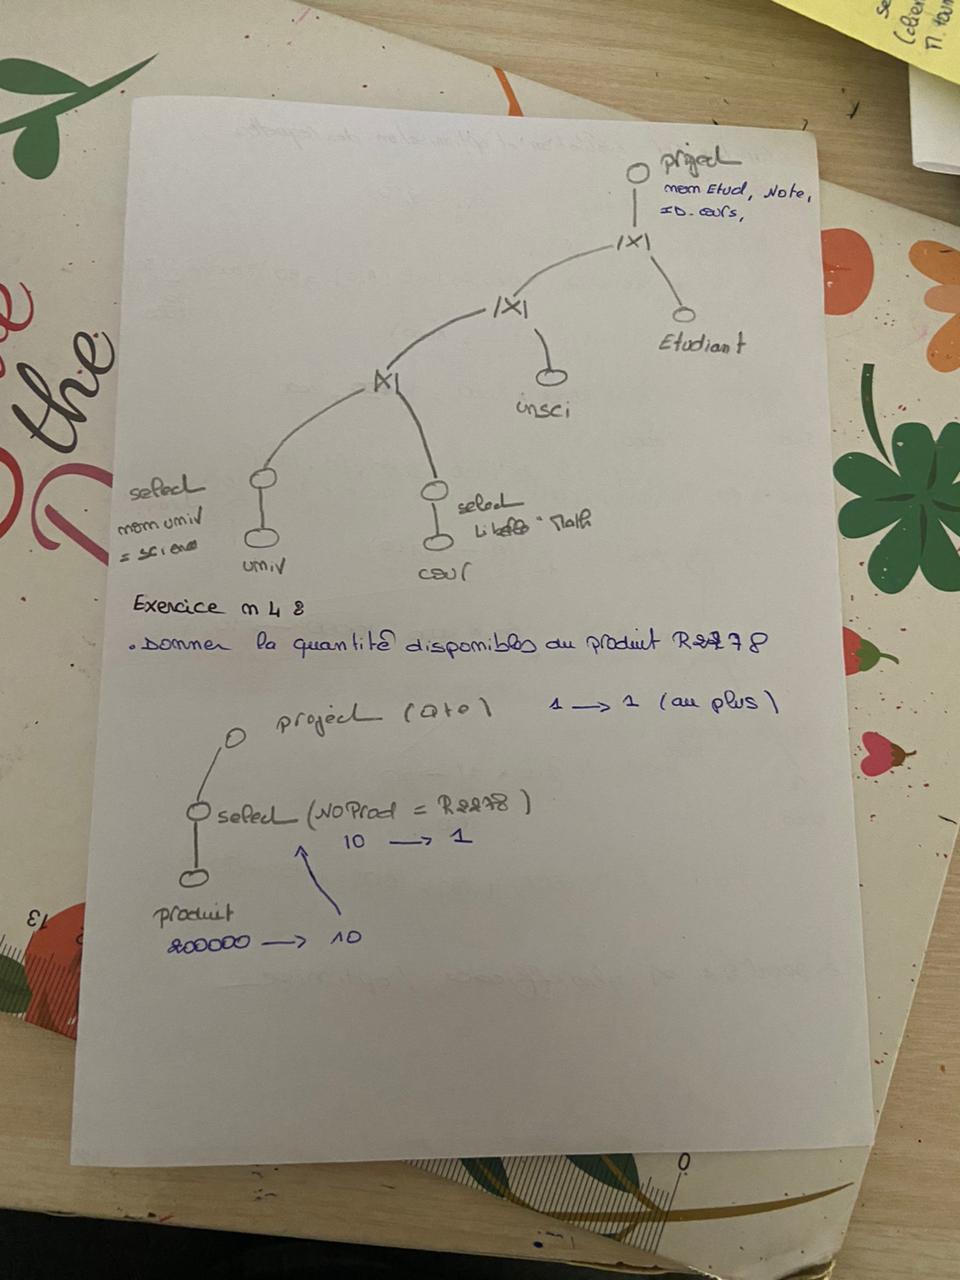 project
nom Etud, Note,
ID. cours,
|X|
|X|
Etudiant
|X|
insci
select
nom univ
= science
select
Libelle = Math
univ
cour
Exercice n 4 8
. Donner la quantité disponibles du produit R2278
project (Qte) 1 → 1 (au plus)
select (NO Prod = R2278)
10 → 1
produit
200000 → 10
the
13
0